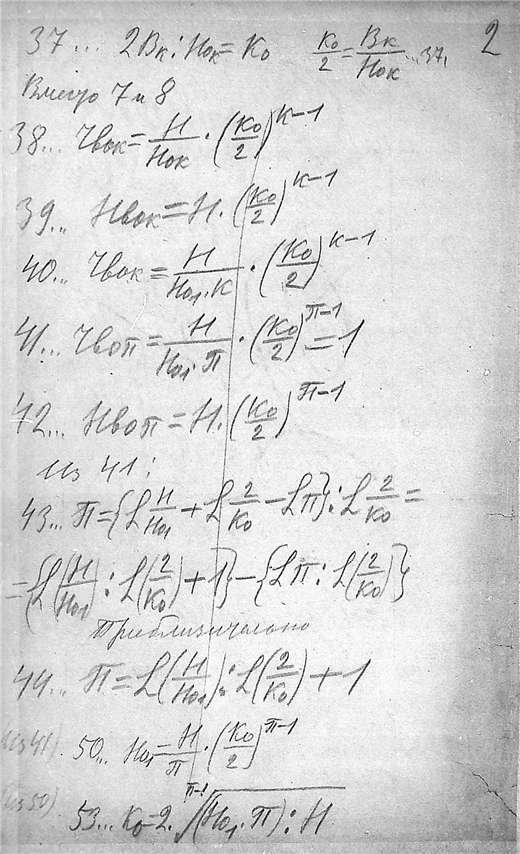 2
37... 2Вк:Нок=Ко Ко/2=Вк/Нок ..37,
Вместо 7 и 8
38... Чвок=Н/Нок·(Ко/2)^к-1
39.. Нвок=Н·(Ко/2)^к-1
40.. Чвок=Н/(Но1·К)·(Ко/2)^к-1
41... Чвоп=Н/(Но1·П)·(Ко/2)^П-1=1
42... Нвоп=Н·(Ко/2)^П-1
Из 41:
43... П={L Н/Но1+L 2/Ко-Lп}:L 2/Ко=
={L(Н/Но1):L(2/Ко)+1}-{Lп:L(2/Ко)}
Приблизительно
44... П=L(Н/Но1):L(2/Ко)+1
(Из 41) 50.. Но1=Н/П·(Ко/2)^П-1
(Из 50)
53... Ко=2·^П-1√(Но1·П):Н